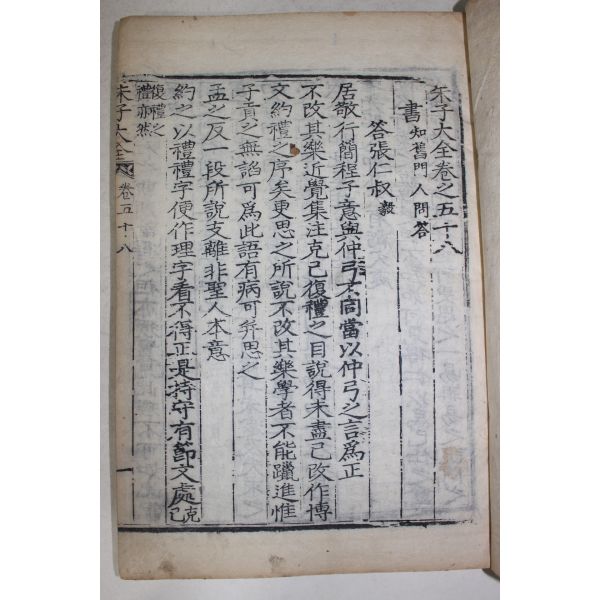 朱子大全卷之五十八
書 知舊門人問答
答張仁叔 毅
居敬行簡程子意與仲弓不同當以仲弓之言爲正
不改其樂近覺集注克己復禮之目說得未盡已改作博
文約禮之序矣更思之所說不改其樂學者不能躐進惟
子貢之無諂可爲此語有病可并思之
孟之反一段所說支離非聖人本意
約之以禮禮字便作理字看不得正是持守有節文處 克己
復禮之
禮亦然
朱子大全 卷五十八 一